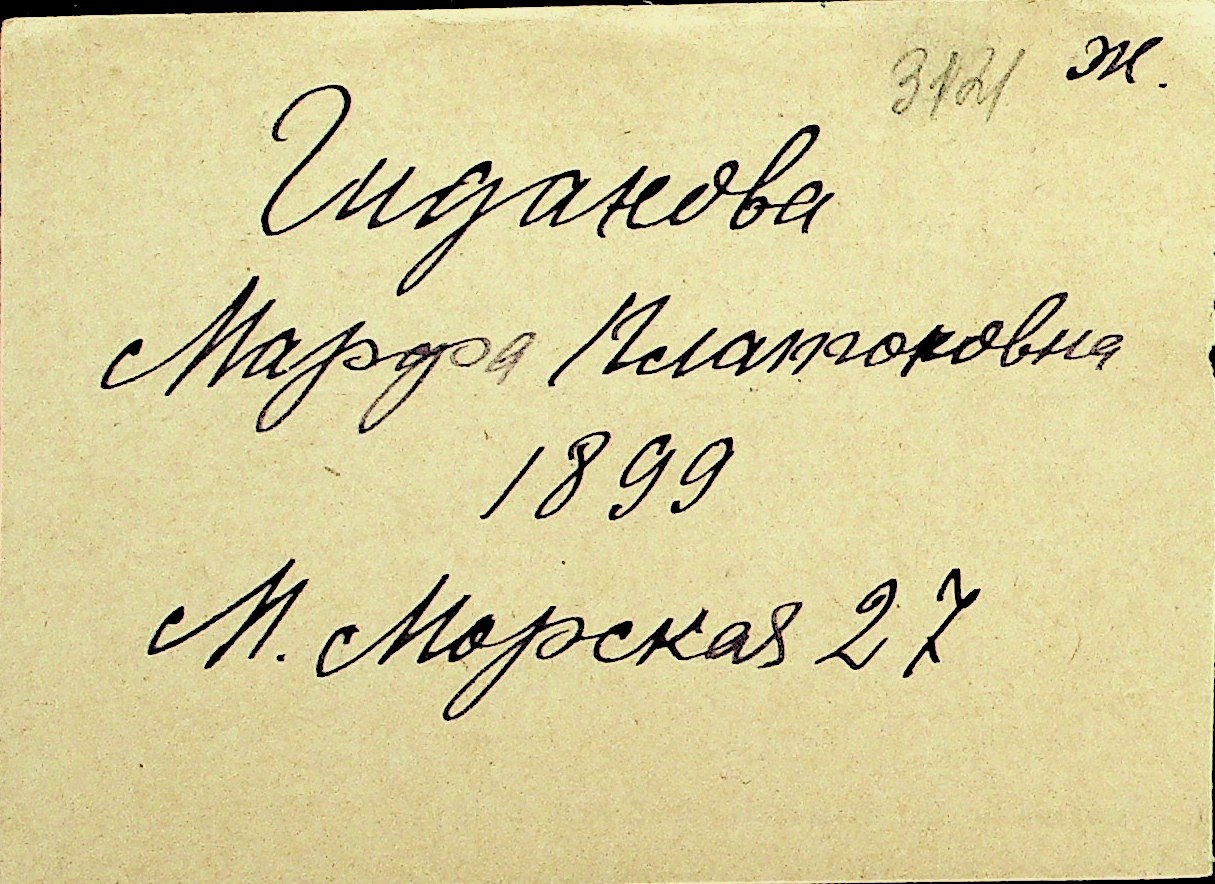 3121 ж.
Гиданова
Марфа Платоновна
1899
М. Морская 27